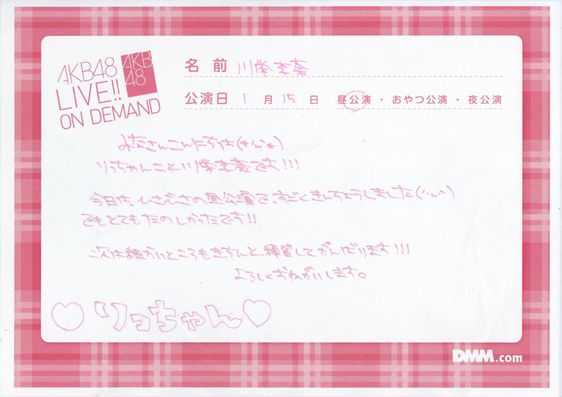 AKB48
LIVE!!
ON DEMAND
AKB
48
名前 川栄李奈
公演日 1月15日 昼公演・おやつ公演・夜公演
みなさんこんにちは(*'ω'*)
りっちゃんこと川栄李奈です!!!
今日は、ひさびさの昼公演で、すごくきんちょうしました('・ω・')
でもとてもたのしかったです!!
次は細かいところもきちんと練習してがんばります!!!
よろしくおねがいします。
♡りっちゃん♡
DMM.com